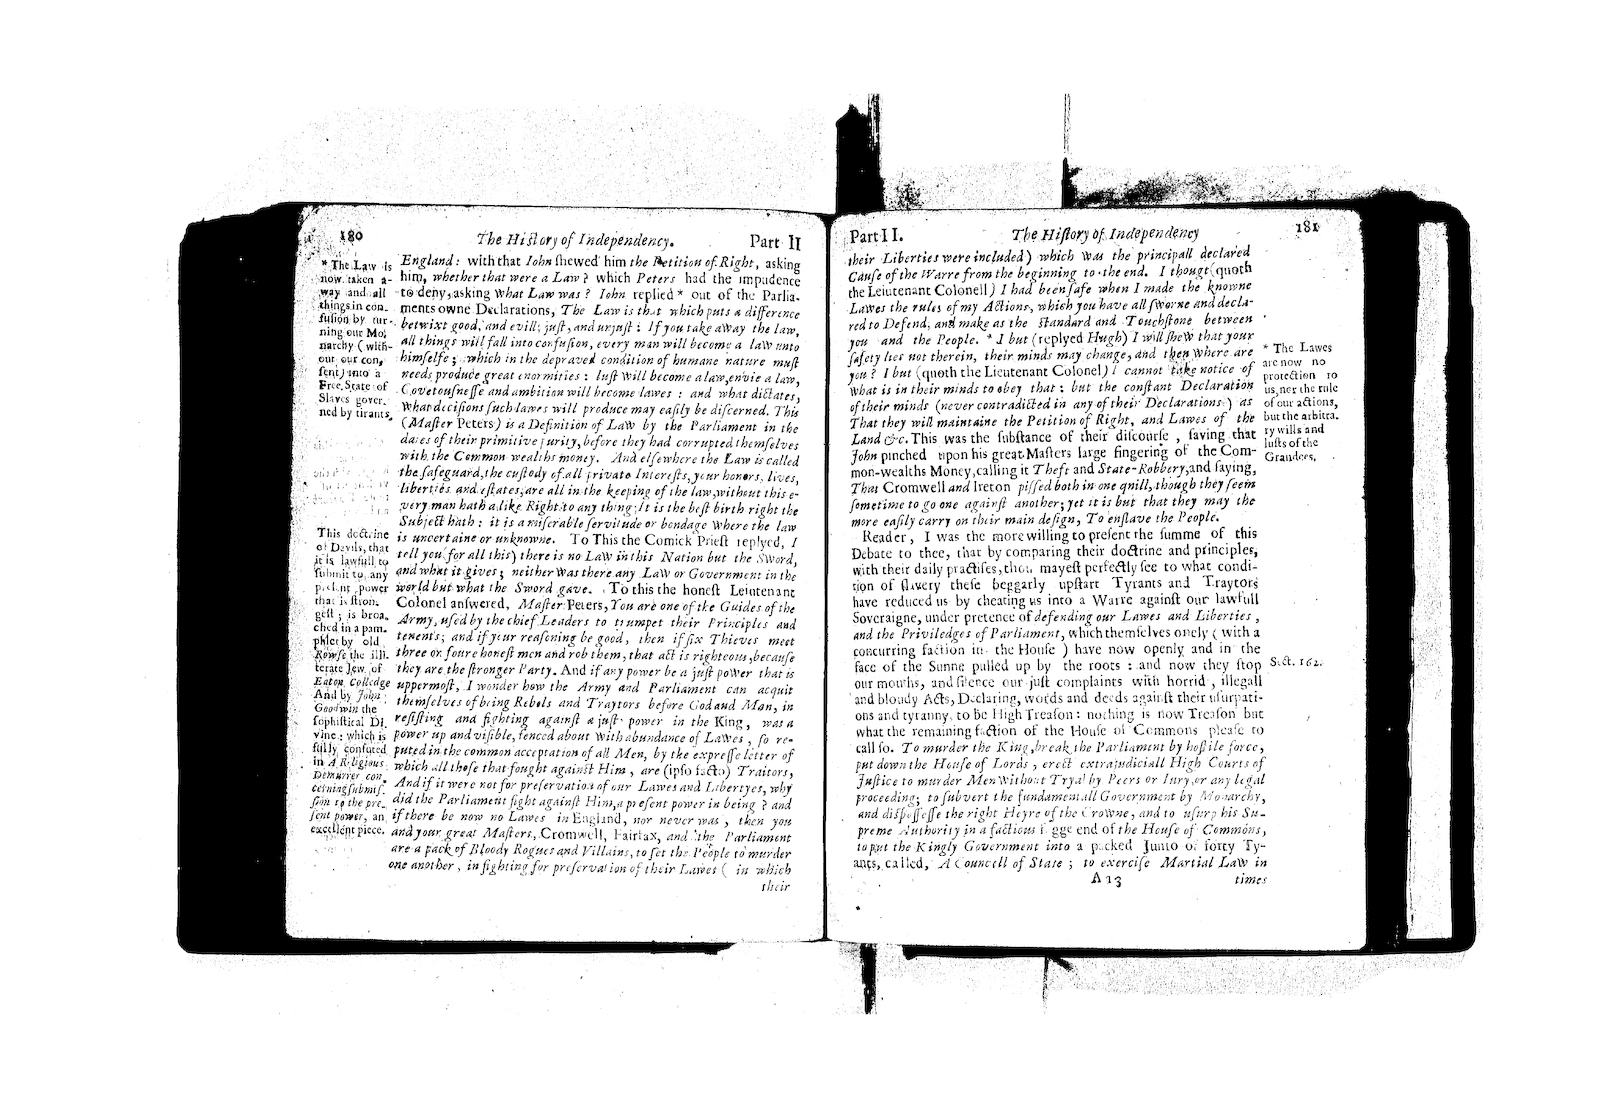 180 The History of Independency. Part II
* The Law is
now taken a-
way and all
things in con-
fusion by tur-
ning our Mo-
narchy (with-
out our con-
sent) into a
Free State of
Slaves gover-
ned by tirants.
This doctrine
of Devils, that
it is lawfull to
submit to any
present power
that is stron-
gest; is broa-
ched in a pam-
phlet by old
Rowse the illi-
terate Jew of
Eaton Colledge
And by John
Goodwin the
sophistical Di-
vine: which is
fully confuted
in A Religious
Demurrer con-
cerning submis-
sion to the pre-
sent power, an
excellent piece.
England: with that Iohn shewed him the Petition of Right, asking
him, whether that were a Law? which Peters had the impudence
to deny, asking What Law was? Iohn replied * out of the Parlia-
ments owne Declarations, The Law is that which puts a difference
betwixt good, and evill; just, and unjust: If you take away the law,
all things will fall into confusion, every man will become a law unto
himselfe; which in the depraved condition of humane nature must
needs produce great enormities: lust will become a law, envie a law,
Covetousnesse and ambition will become lawes: and what dictates,
What decisions such lawes will produce may easily be discerned. This
(Master Peters) is a Definition of Law by the Parliament in the
daies of their primitive purity, before they had corrupted themselves
with the Common wealths money. And elsewhere the Law is called
the safeguard, the custody of all private Interests, your honors, lives,
liberties and estates, are all in the keeping of the law, without this e-
very man hath a like Right to any thing; It is the best birth right the
Subject hath: it is a miserable servitude or bondage Where the law
is uncertaine or unknowne. To This the Comick Priest replyed, I
tell you (for all this) there is no Law in this Nation but the Sword,
and what it gives; neither Was there any Law or Government in the
world but what the Sword gave. To this the honest Leiutenant
Colonel answered, Master Peters, You are one of the Guides of the
Army, used by the chief Leaders to trumpet their Principles and
tenents; and if your reasoning be good, then if six Thieves meet
three or foure honest men and rob them, that act is righteous, because
they are the stronger Party. And if any power be a just power that is
uppermost, I wonder how the Army and Parliament can acquit
themselves of being Rebels and Traytors before God aud Man, in
resisting and fighting against a just power in the King, was a
power up and visible, fenced about With abundance of Lawes, so re-
puted in the common acceptation of all Men, by the expresse letter of
which all those that fought against Him, are (ipso facto) Traitors,
And if it were not for preservation of our Lawes and Libertyes, why
did the Parliament fight against Him, a present power in being? and
if there be now no Lawes in England, nor never was, then you
and your great Masters, Cromwell, Fairfax, and the Parliament
are a pack of Bloody Rogues and Villains, to set the People to murder
one another, in fighting for preservation of their Lawes (in which
their
Part II. The History of Independency 181
their Liberties were included) which was the principall declared
Cause of the Warre from the beginning to the end. I thougt (quoth
the Leiutenant Colonell) I had been safe when I made the knowne
Lawes the rules of my Actions, which you have all sworne and decla-
red to Defend, and make as the Standard and Touchstone between
you and the People. * I but (replyed Hugh) I will shew that your
safety lies not therein, their minds may change, and then where are
you? I but (quoth the Lieutenant Colonel) I cannot take notice of
What is in their minds to obey that: but the constant Declaration
of their minds (never contradicted in any of their Declarations) as
That they will maintaine the Petition of Right, and Lawes of the
Land &c. This was the substance of their discourse, saving that
John pinched upon his great Masters large fingering of the Com-
mon-wealths Money, calling it Theft and State-Robbery, and saying,
That Cromwell and Ireton pissed both in one qnill, though they seem
sometime to go one against another; yet it is but that they may the
more easily carry on their main design, To enslave the People.
Reader, I was the more willing to present the summe of this
Debate to thee, that by comparing their doctrine and principles,
with their daily practises, thou mayest perfectly see to what condi-
tion of slavery these beggarly upstart Tyrants and Traytors
have reduced us by cheating us into a Warre against our lawfull
Soveraigne, under pretence of defending our Lawes and Liberties,
and the Priviledges of Parliament, which themselves onely (with a
concurring faction in the House) have now openly and in the
face of the Sunne pulled up by the roots: and now they stop
our mouths, and silence our just complaints with horrid, illegall
and bloudy Acts, Declaring, words and deeds against their usurpati-
ons and tyranny, to be High Treason: nothing is now Treason but
what the remaining faction of the House of Commons please to
call so. To murder the King, break the Parliament by hostile force,
put down the House of Lords, erect extrajudiciall High Courts of
Justice to murder Men Without Tryal by Peers or Iury, or any legal
proceeding; to subvert the fundamentall Government by Monarchy,
and dispossesse the right Heyre of the Crowne, and to usurp his Su-
preme Authority in a factious fagge end of the House of Commons,
to put the Kingly Government into a packed Junto of forty Ty-
ants, called, A Councell of State; to exercise Martial Law in
* The Lawes
are now no
protection to
us, nor the rule
of our actions,
but the arbitra-
ry wills and
lusts of the
Grandees.
Sect. 162.
A a 3 times